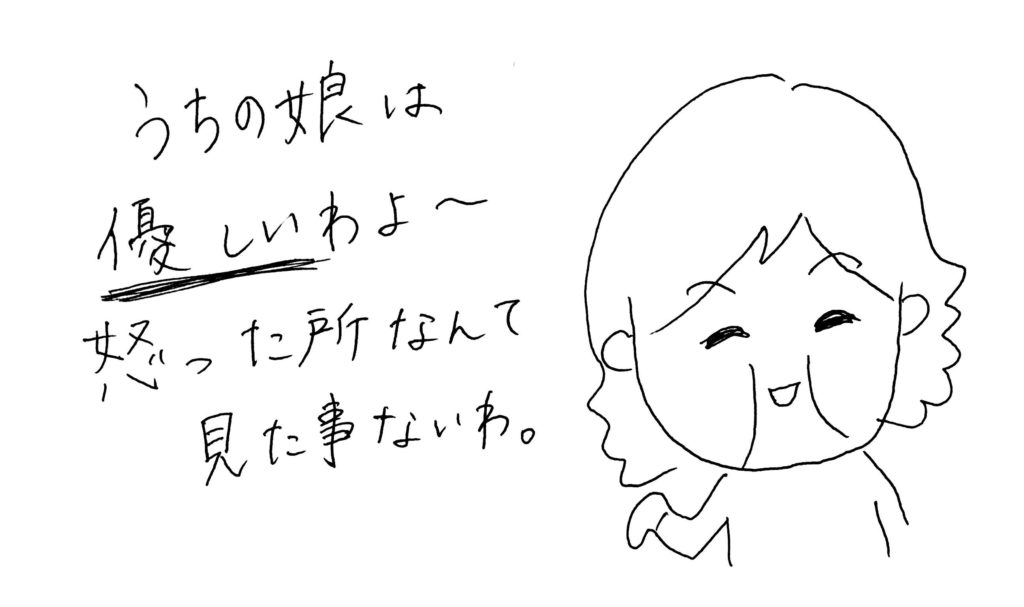 うちの娘は
優しいわよ〜
怒った所なんて
見た事ないわ。